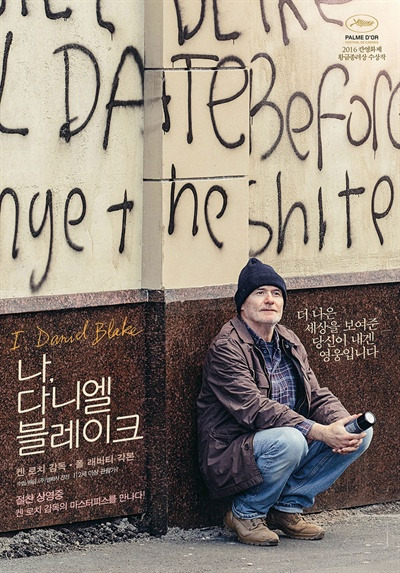 BLAKE
L DATE Before
nge the shite
PALME D'OR
FESTIVAL DE CANNES
2016 칸영화제
황금종려상 수상작
더 나은
세상을 보여준
당신이 내겐
영웅입니다
I Daniel Blake
나,
다니엘
블레이크
켄 로치 감독 · 폴 래버티 각본
절찬 상영중
켄 로치 감독의 마스터피스를 만나다!